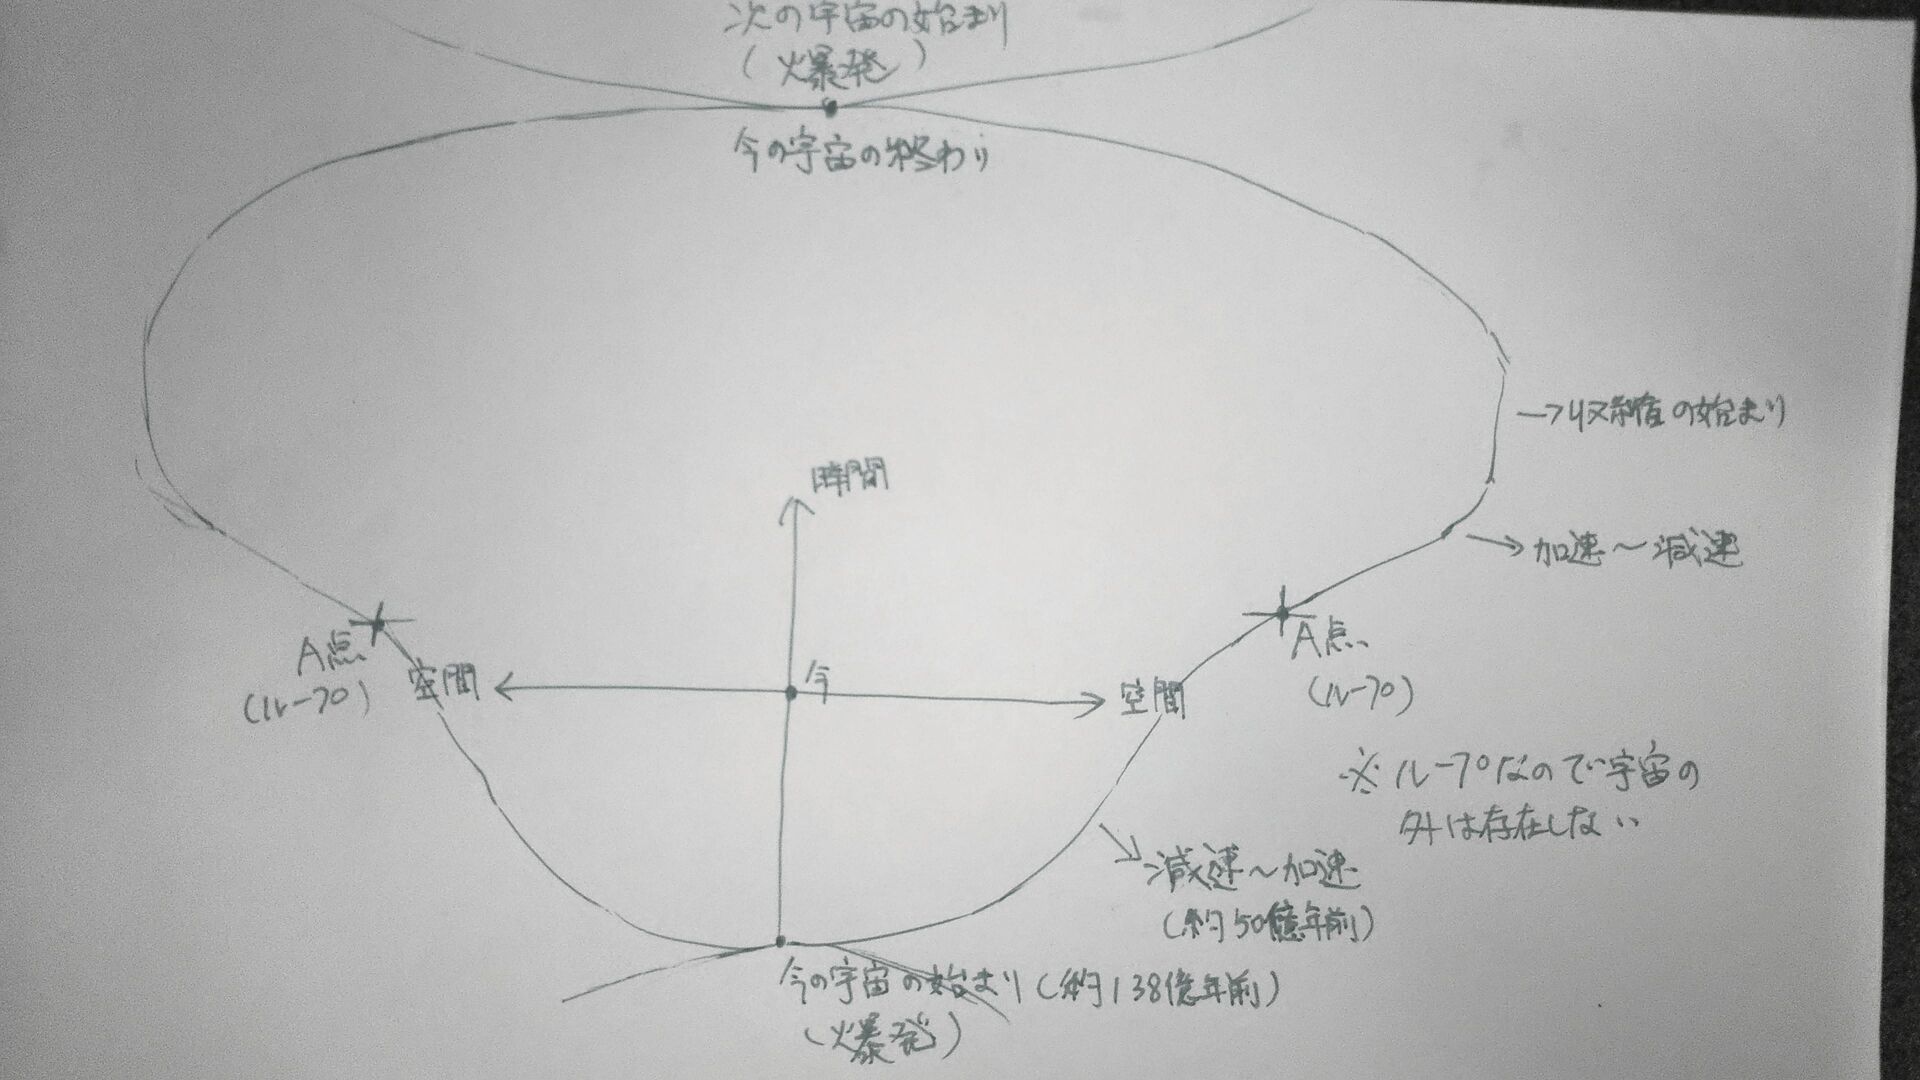 次の宇宙の始まり
(爆発)
今の宇宙の終わり
→収縮の始まり
時間
→加速〜減速
A点
(ループ)
空間
今
空間
A点
(ループ)
※ループなので宇宙の
外は存在しない
減速〜加速
(約50億年前)
今の宇宙の始まり(約138億年前)
(爆発)